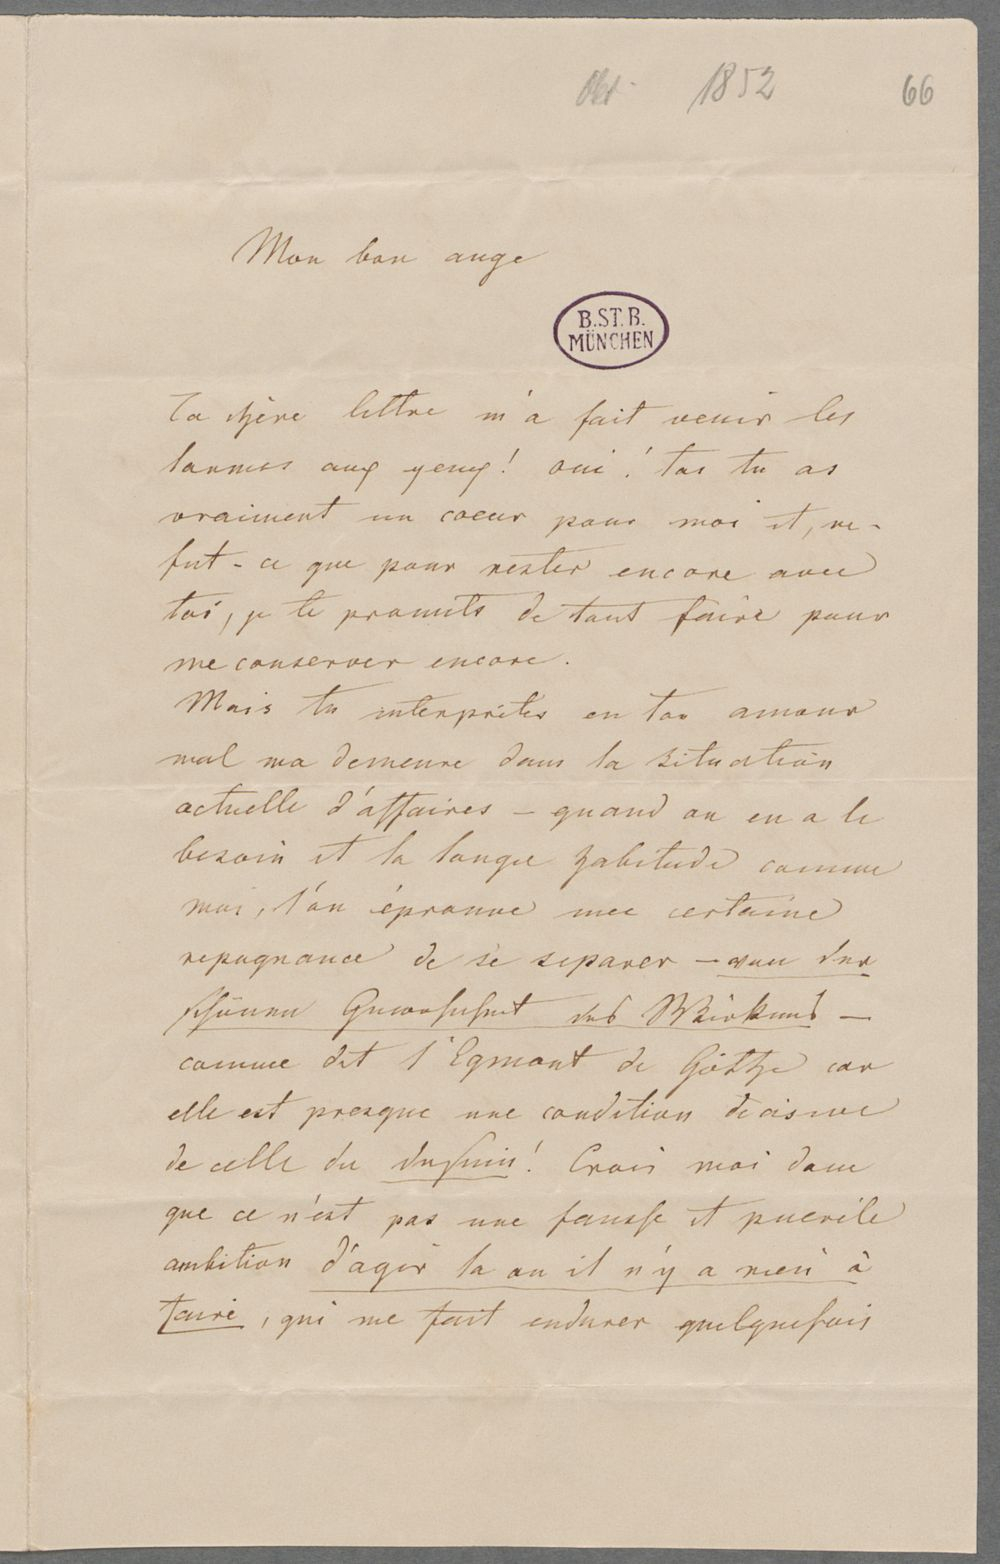 Okt. 1852 66
Mon bon ange
B.ST.B.
MÜNCHEN
Ta chère lettre m'a fait venir les
larmes aux yeux! oui! toi tu as
vraiment un coeur pour moi et, ne-
fut-ce que pour rester encore avec
toi, je te promets de tout faire pour
me conserver encore.
Mais tu interprètes en ton amour
mal ma demeure dans la situation
actuelle d'affaires – quand on en a le
besoin et la longue habitude comme
moi, l'on éprouve une certaine
repugnance de se separer – von der
schönen Gewohnheit des Wirkens –
comme dit l'Egmont de Göthe car
elle est presque une condition decisive
de celle du daseins! Crois moi donc
que ce n'est pas une fausse et puerile
ambition d'agir la ou il n'y a rien à
faire, qui me fait endurer quelquefois